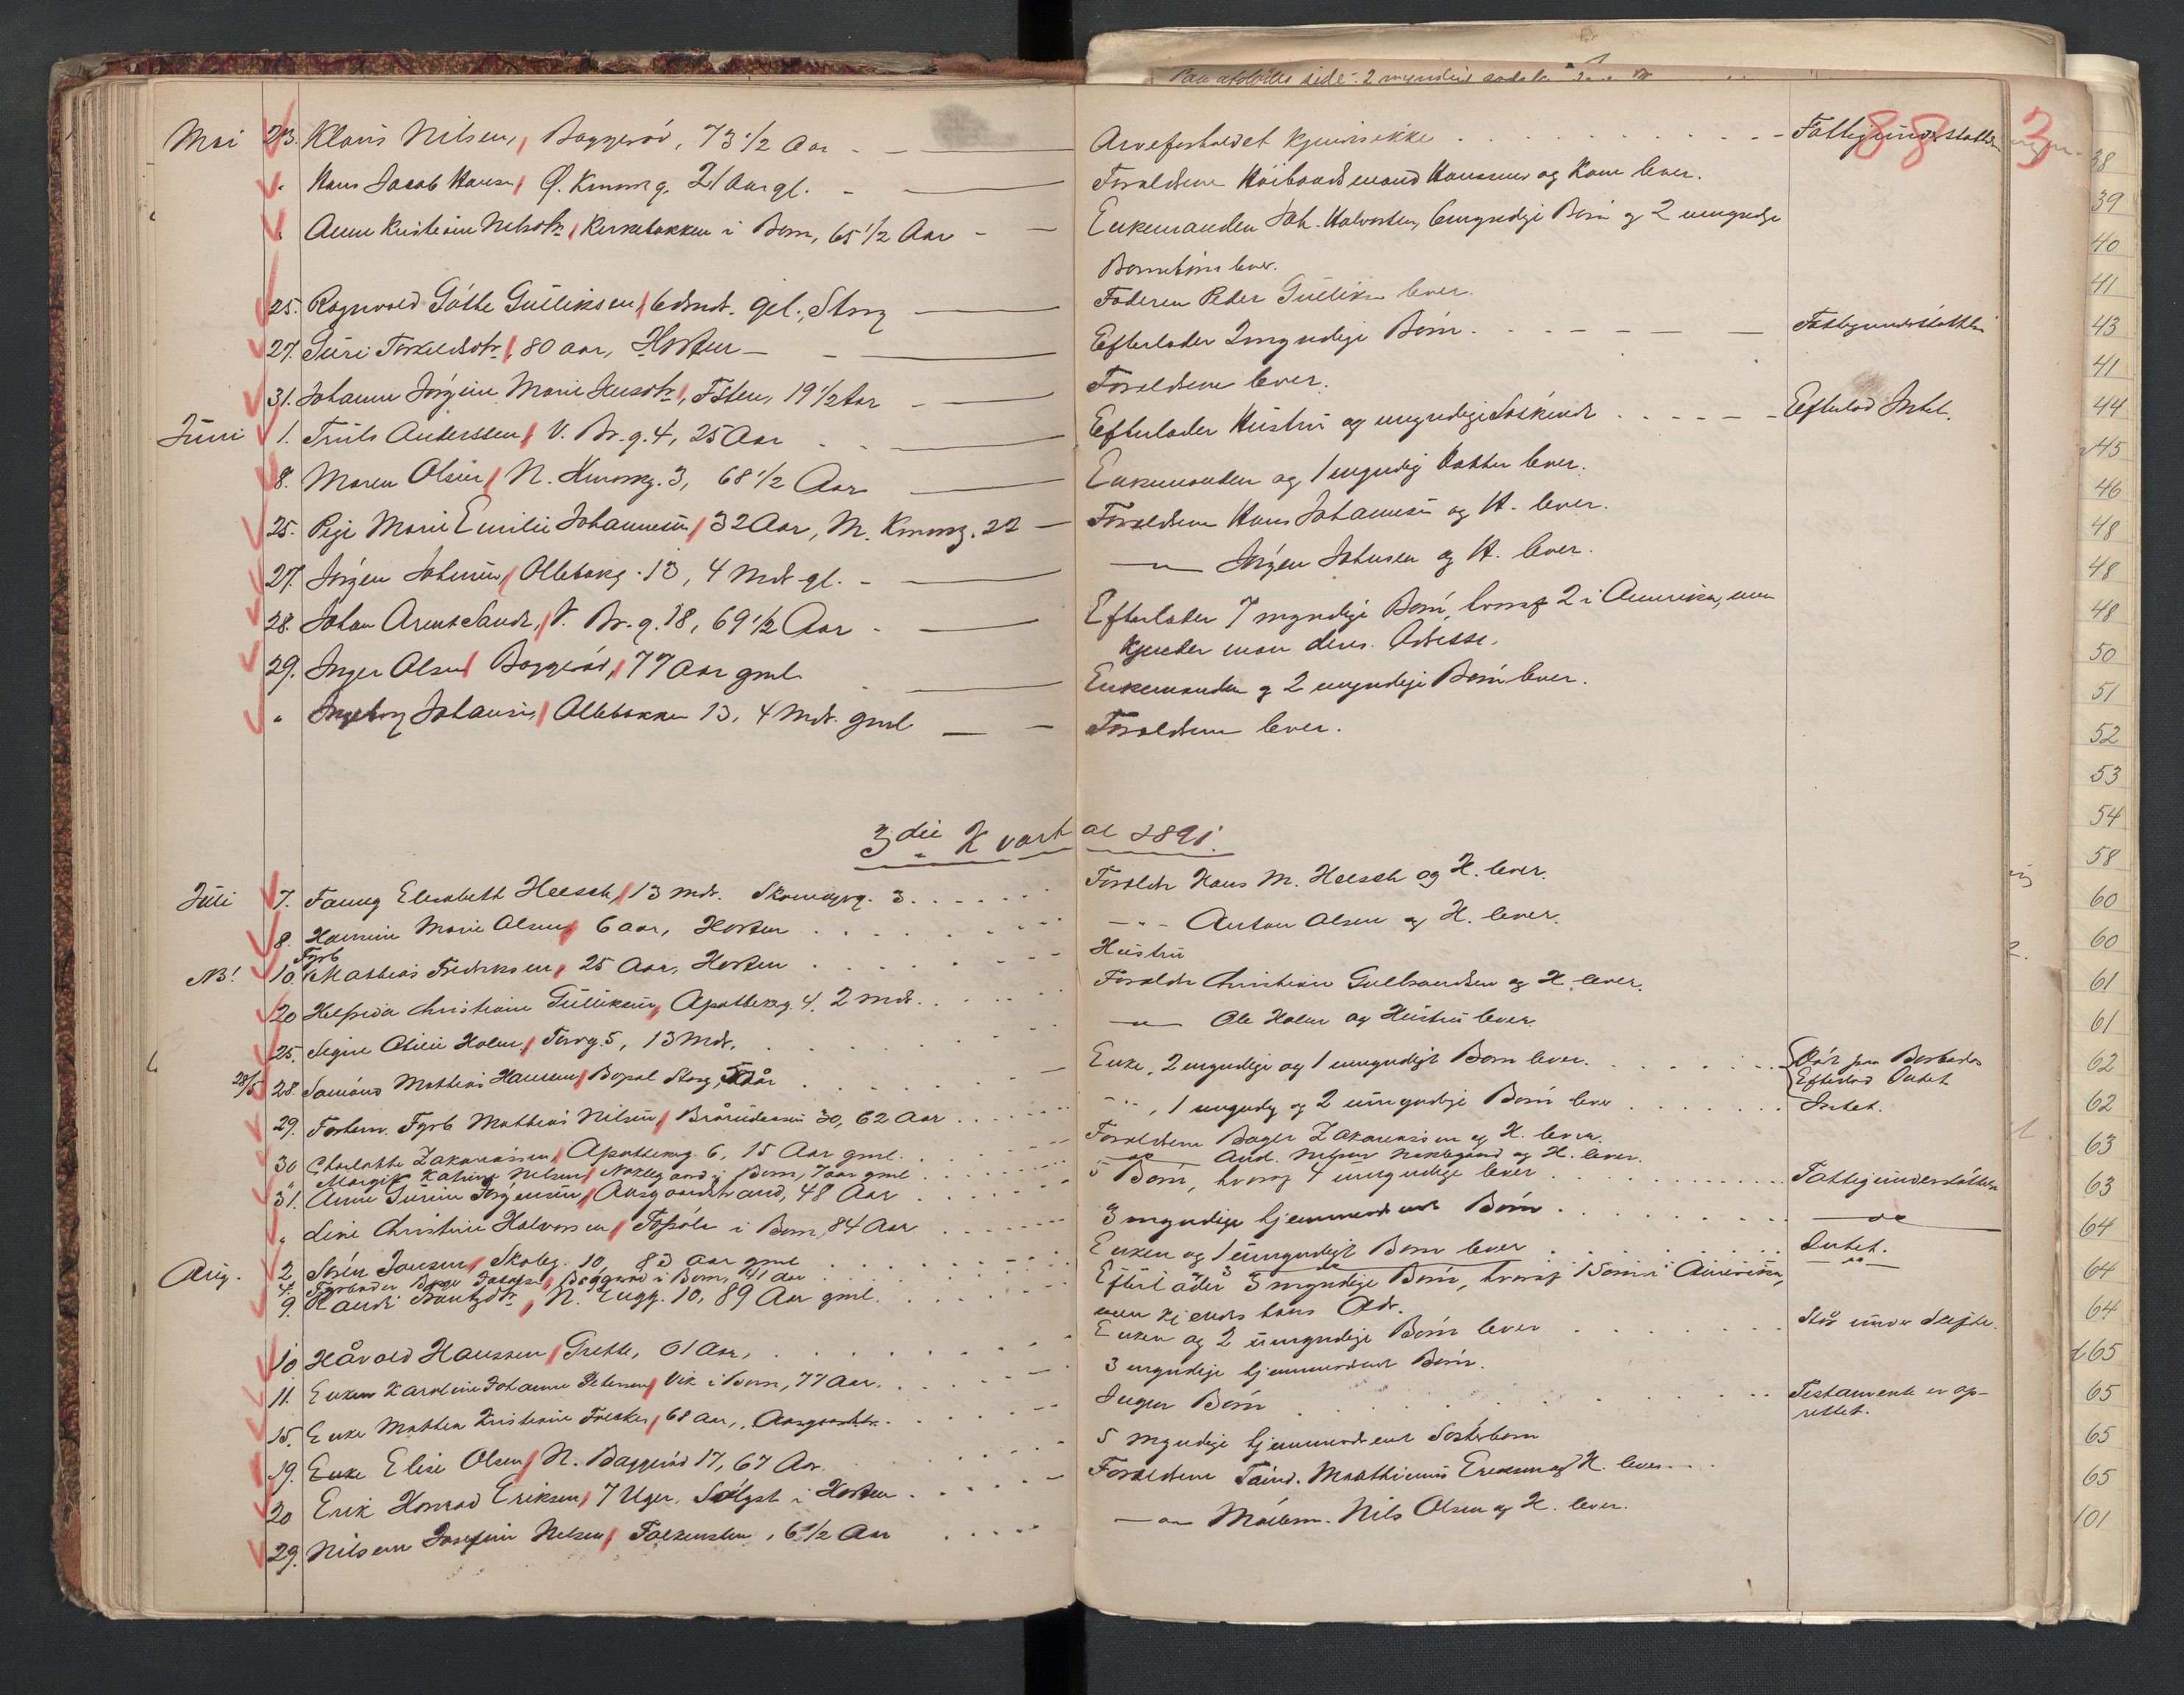 88
Mai 23. Klaus Nilsen, Baggerød, 73 1/2 Aar - - Arveforholdet kjendes ikke - - Fattigunderstøttet
" Hans Jacob Hansen, Ø. 21 Aar gl. - Forældrene Hansen og Kone lever.
" Anne Kristine Kirkebakken i Borre, 65 1/2 Aar - - Enkemanden Joh. Halvorsen, myndige Børn og 2 umyndige
Børnebørn lever.
25. Ragnvald Göthe Gulliksen, gl., Storg - Faderen Peder Gulliksen lever.
27. Siri Torkeldsdtr, 80 aar, Horten - - Efterlader 2 myndige Børn - - Fattigunderstøttet
31. Johanne Jørgine Marie 19 1/2 Aar - Forældrene lever.
Juni 1. Truls Anderssen, V. Br. g. 4, 25 Aar - - Efterlader Hustru og myndige Søskende - - Efterlod Intet.
8. Maren Olsen, N. 3, 68 1/2 Aar - Enkemanden og 1 myndig Datter lever.
25. Pige Marie Emilie Johannesen, 32 Aar, M. 22 - Forældrene Hans Johannesen og H. lever.
27. Jørgen Johnsen, Ollebakg. 13, 4 Mdr gl. - - Jørgen Johnsen og H. lever.
28. Johan Arent Sand, V. Br. g. 18, 69 1/2 Aar - Efterlader 7 myndige Børn, hvoraf 2 i Amerika, men
kjender man deres Adresse.
29. Inger Olsen Baggerød, 77 Aar gml. - Enkemanden og 2 myndige Børn lever.
" Ingeborg Johansen, Ollebakken 13, 4 Mdr. gml - - Forældrene lever.
3die Kvartal 1891.
Juli 7. Fanny Elisabeth Heesch, 13 Mdr. Skomagerg. 3 Forældr Hans M. Heesch og H. lever.
8. Marie Olsen, 6 aar, Horten - " - Anton Olsen og H. lever.
NB! 10. Fyrb Mathias Fredriksen, 25 Aar, Horten - Hustru
20 Helfrida Christiane Gulliksen, Apothekerg. 4, 2 mdr. Forældr Christian Gulbrandsen og H. lever.
25. Signe Otilie Holm, Torvg. 5, 13 Mdr. - " - Ole Holm og Hustru lever.
28/5 28. Sømand Mathias Hansen, Storg, Enke, 2 myndige og 1 umyndigt Barn lever. Død paa Barbados
Efterlod Intet
29. Fyrb Mathias Nilsen, 30, 62 Aar - " -, 1 myndig og 2 umyndige Børn lever Intet.
30 Charlotte Zakariassen, Apothekerg. 6, 15 Aar gml. Forældrene Bager Zakariassen og H. lever.
" Margit Katrine Nilsen, Nøklegaard i Borre, 7 aar gml - " - And. Nilsen Nøklegaard og H. lever.
31. Anne Gurine Jørgensen, Aasgaardstrand, 48 Aar 5 Børn, hvoraf 4 umyndige lever Fattigunderstøttet
" Line Christine Halvorsen, i Borre, 84 Aar 3 myndige hjemmeværende Børn - " -
Aug. 2. Søren Jansen, Skoleg. 10, 83 Aar gml Enken og 1 umyndigt Barn lever Intet.
4. 41 aar 3 - " -
9. Randi N. Engg. 10, 89 Aar gml. Efterlader 3 myndige Børn, hvoraf 1 Søn i Amerika,
men kjendes hans Adr.
10 Håvald Hanssen, 61 Aar, Enken og 2 umyndige Børn lever Står under Skifte.
11. Enken Karoline Johanne Petersen, Vik i Borre, 77 Aar. 3 myndige hjemmeværende Børn.
15. Enke Mathea Kristiane 68 Aar, Aasgaardstr. Ingen Børn Testamente er op-
rettet.
19. Enke Elise Olsen, N. Baggerød 17, 67 Aar. 5 myndige hjemmeværende Søsterbørn
20 Erik Konrad Eriksen, 7 Uger, i Horten Forældrene Mathinius Eriksen og H. lever
29. Josefine Nilsen, Falkensten, 6 1/2 Aar - " - Nils Olsen og H. lever.
38
39
40
41
43
41
44
45
46
48
48
48
50
51
52
53
54
58
60
60
61
61
62
62
63
63
64
64
64
65
65
65
65
101